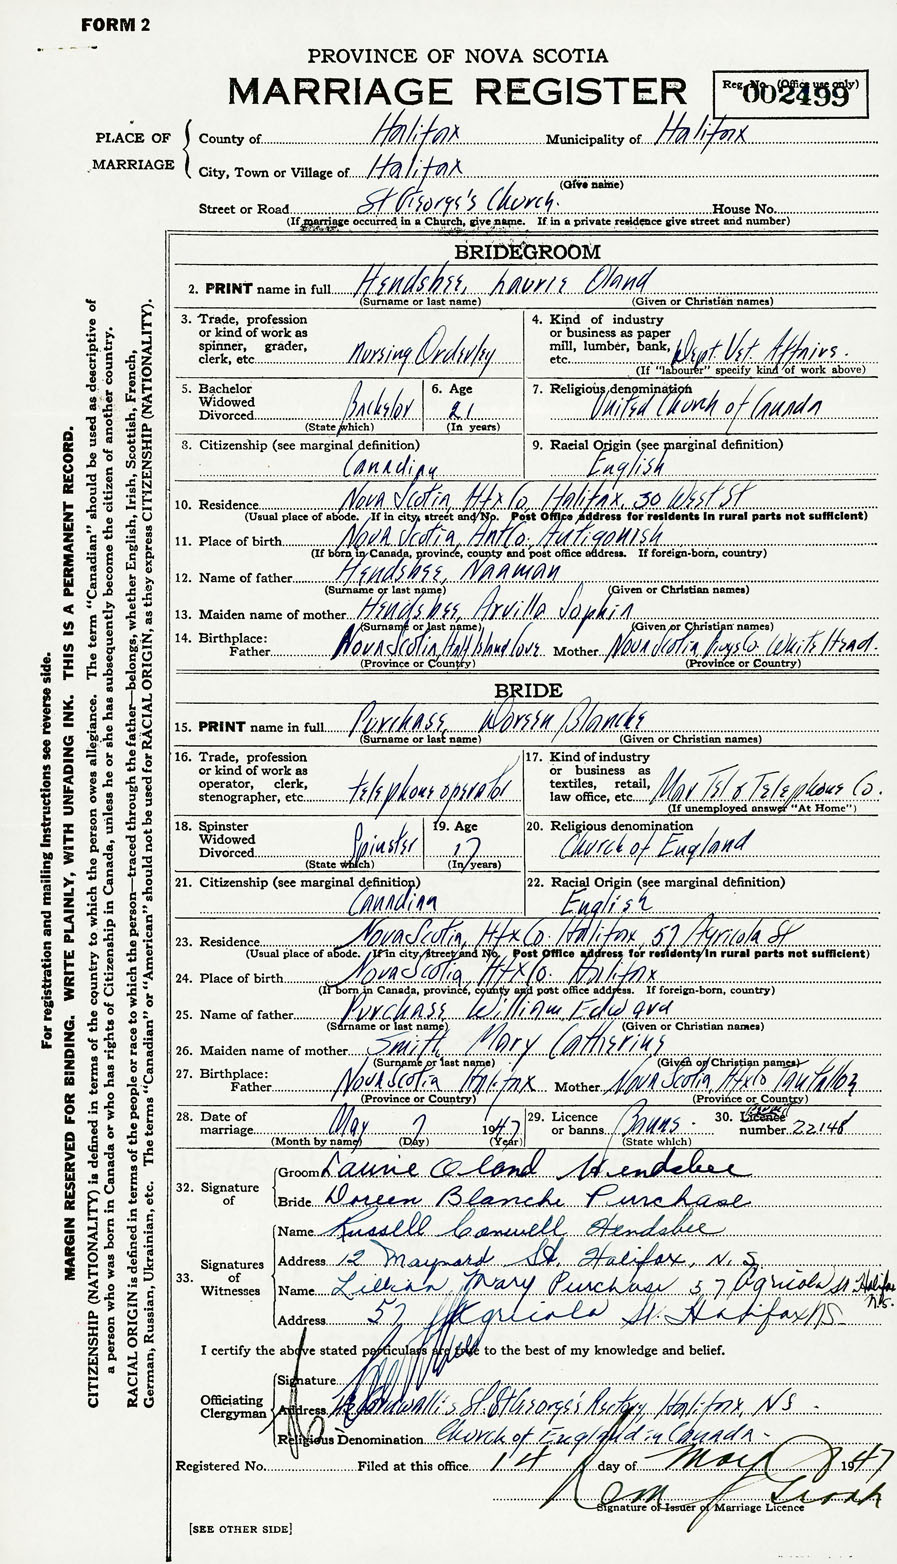 FORM 2
PROVINCE OF NOVA SCOTIA
MARRIAGE REGISTER
Reg. No. (Office use only)
002499
PLACE OF MARRIAGE
County of Halifax Municipality of Halifax
City, Town or Village of Halifax
(Give name)
Street or Road St George's Church. House No.
(If marriage occurred in a Church, give name. If in a private residence give street and number)
BRIDEGROOM
2. PRINT name in full Hendsbee, Laurie Oland
(Surname or last name) (Given or Christian names)
3. Trade, profession or kind of work as spinner, grader, clerk, etc. Nursing Orderley
4. Kind of industry or business as paper mill, lumber, bank, etc. Dept Vet. Affairs.
(If "labourer" specify kind of work above)
5. Bachelor Widowed Divorced Bachelor
(State which)
6. Age 21
(In years)
7. Religious denomination United Church of Canada
8. Citizenship (see marginal definition) Canadian
9. Racial Origin (see marginal definition) English
10. Residence Nova Scotia, Hfx Co, Halifax, 30 West St
(Usual place of abode. If in city, street and No. Post Office address for residents in rural parts not sufficient)
11. Place of birth Nova Scotia, Ant Co. Antigonish
(If born in Canada, province, county and post office address. If foreign-born, country)
12. Name of father Hendsbee, Naaman
(Surname or last name) (Given or Christian names)
13. Maiden name of mother Hendsbee, Arvilla Sophia
(Surname or last name) (Given or Christian names)
14. Birthplace: Father Nova Scotia, Half Island Cove Mother Nova Scotia, Guys Co. White Head.
(Province or Country) (Province or Country)
BRIDE
15. PRINT name in full Purchase, Doreen Blanche
(Surname or last name) (Given or Christian names)
16. Trade, profession or kind of work as operator, clerk, stenographer, etc. telephone operator
17. Kind of industry or business as textiles, retail, law office, etc. Mar Tel & Telephone Co.
(If unemployed answer "At Home")
18. Spinster Widowed Divorced Spinster
(State which)
19. Age 17
(In years)
20. Religious denomination Church of England
21. Citizenship (see marginal definition) Canadian
22. Racial Origin (see marginal definition) English
23. Residence Nova Scotia, Hfx Co. Halifax, 57 Agricola St
(Usual place of abode. If in city, street and No. Post Office address for residents in rural parts not sufficient)
24. Place of birth Nova Scotia, Hfx Co. Halifax
(If born in Canada, province, county and post office address. If foreign-born, country)
25. Name of father Purchase William Edward
(Surname or last name) (Given or Christian names)
26. Maiden name of mother Smith, Mary Catherine
(Surname or last name) (Given or Christian names)
27. Birthplace: Father Nova Scotia Halifax Mother Nova Scotia, Hfx Co Tantallon
(Province or Country) (Province or Country)
28. Date of marriage May 7 1947
(Month by name) (Day) (Year)
29. Licence or banns Banns.
(State which)
30. Licence number 22148
32. Signature of
Groom Laurie Oland Hendsbee
Bride Doreen Blanche Purchase
33. Signatures of Witnesses
Name Russell Conwell Hendsbee
Address 12 Maynard St. Halifax, N.S.
Name Lillian Mary Purchase 57 Agricola St Halifax N.S.
Address 57 Agricola St. Halifax N.S.
I certify the above stated particulars are true to the best of my knowledge and belief.
Officiating Clergyman
Signature
Address Cornwallis St. St George's Rectory Halifax, N S.
Religious Denomination Church of England in Canada.
Registered No. Filed at this office 14 day of May 1947
Signature of Issuer of Marriage Licence
[SEE OTHER SIDE]
For registration and mailing instructions see reverse side.
MARGIN RESERVED FOR BINDING. WRITE PLAINLY, WITH UNFADING INK. THIS IS A PERMANENT RECORD.
CITIZENSHIP (NATIONALITY) is defined in terms of the country to which the person owes allegiance. The term "Canadian" should be used as descriptive of
a person who was born in Canada or who has rights of Citizenship in Canada, unless he or she has subsequently become the citizen of another country.
RACIAL ORIGIN is defined in terms of the people or race to which the person—traced through the father—belongs, whether English, Irish, Scottish, French,
German, Russian, Ukrainian, etc. The terms "Canadian" or "American" should not be used for RACIAL ORIGIN, as they express CITIZENSHIP (NATIONALITY).